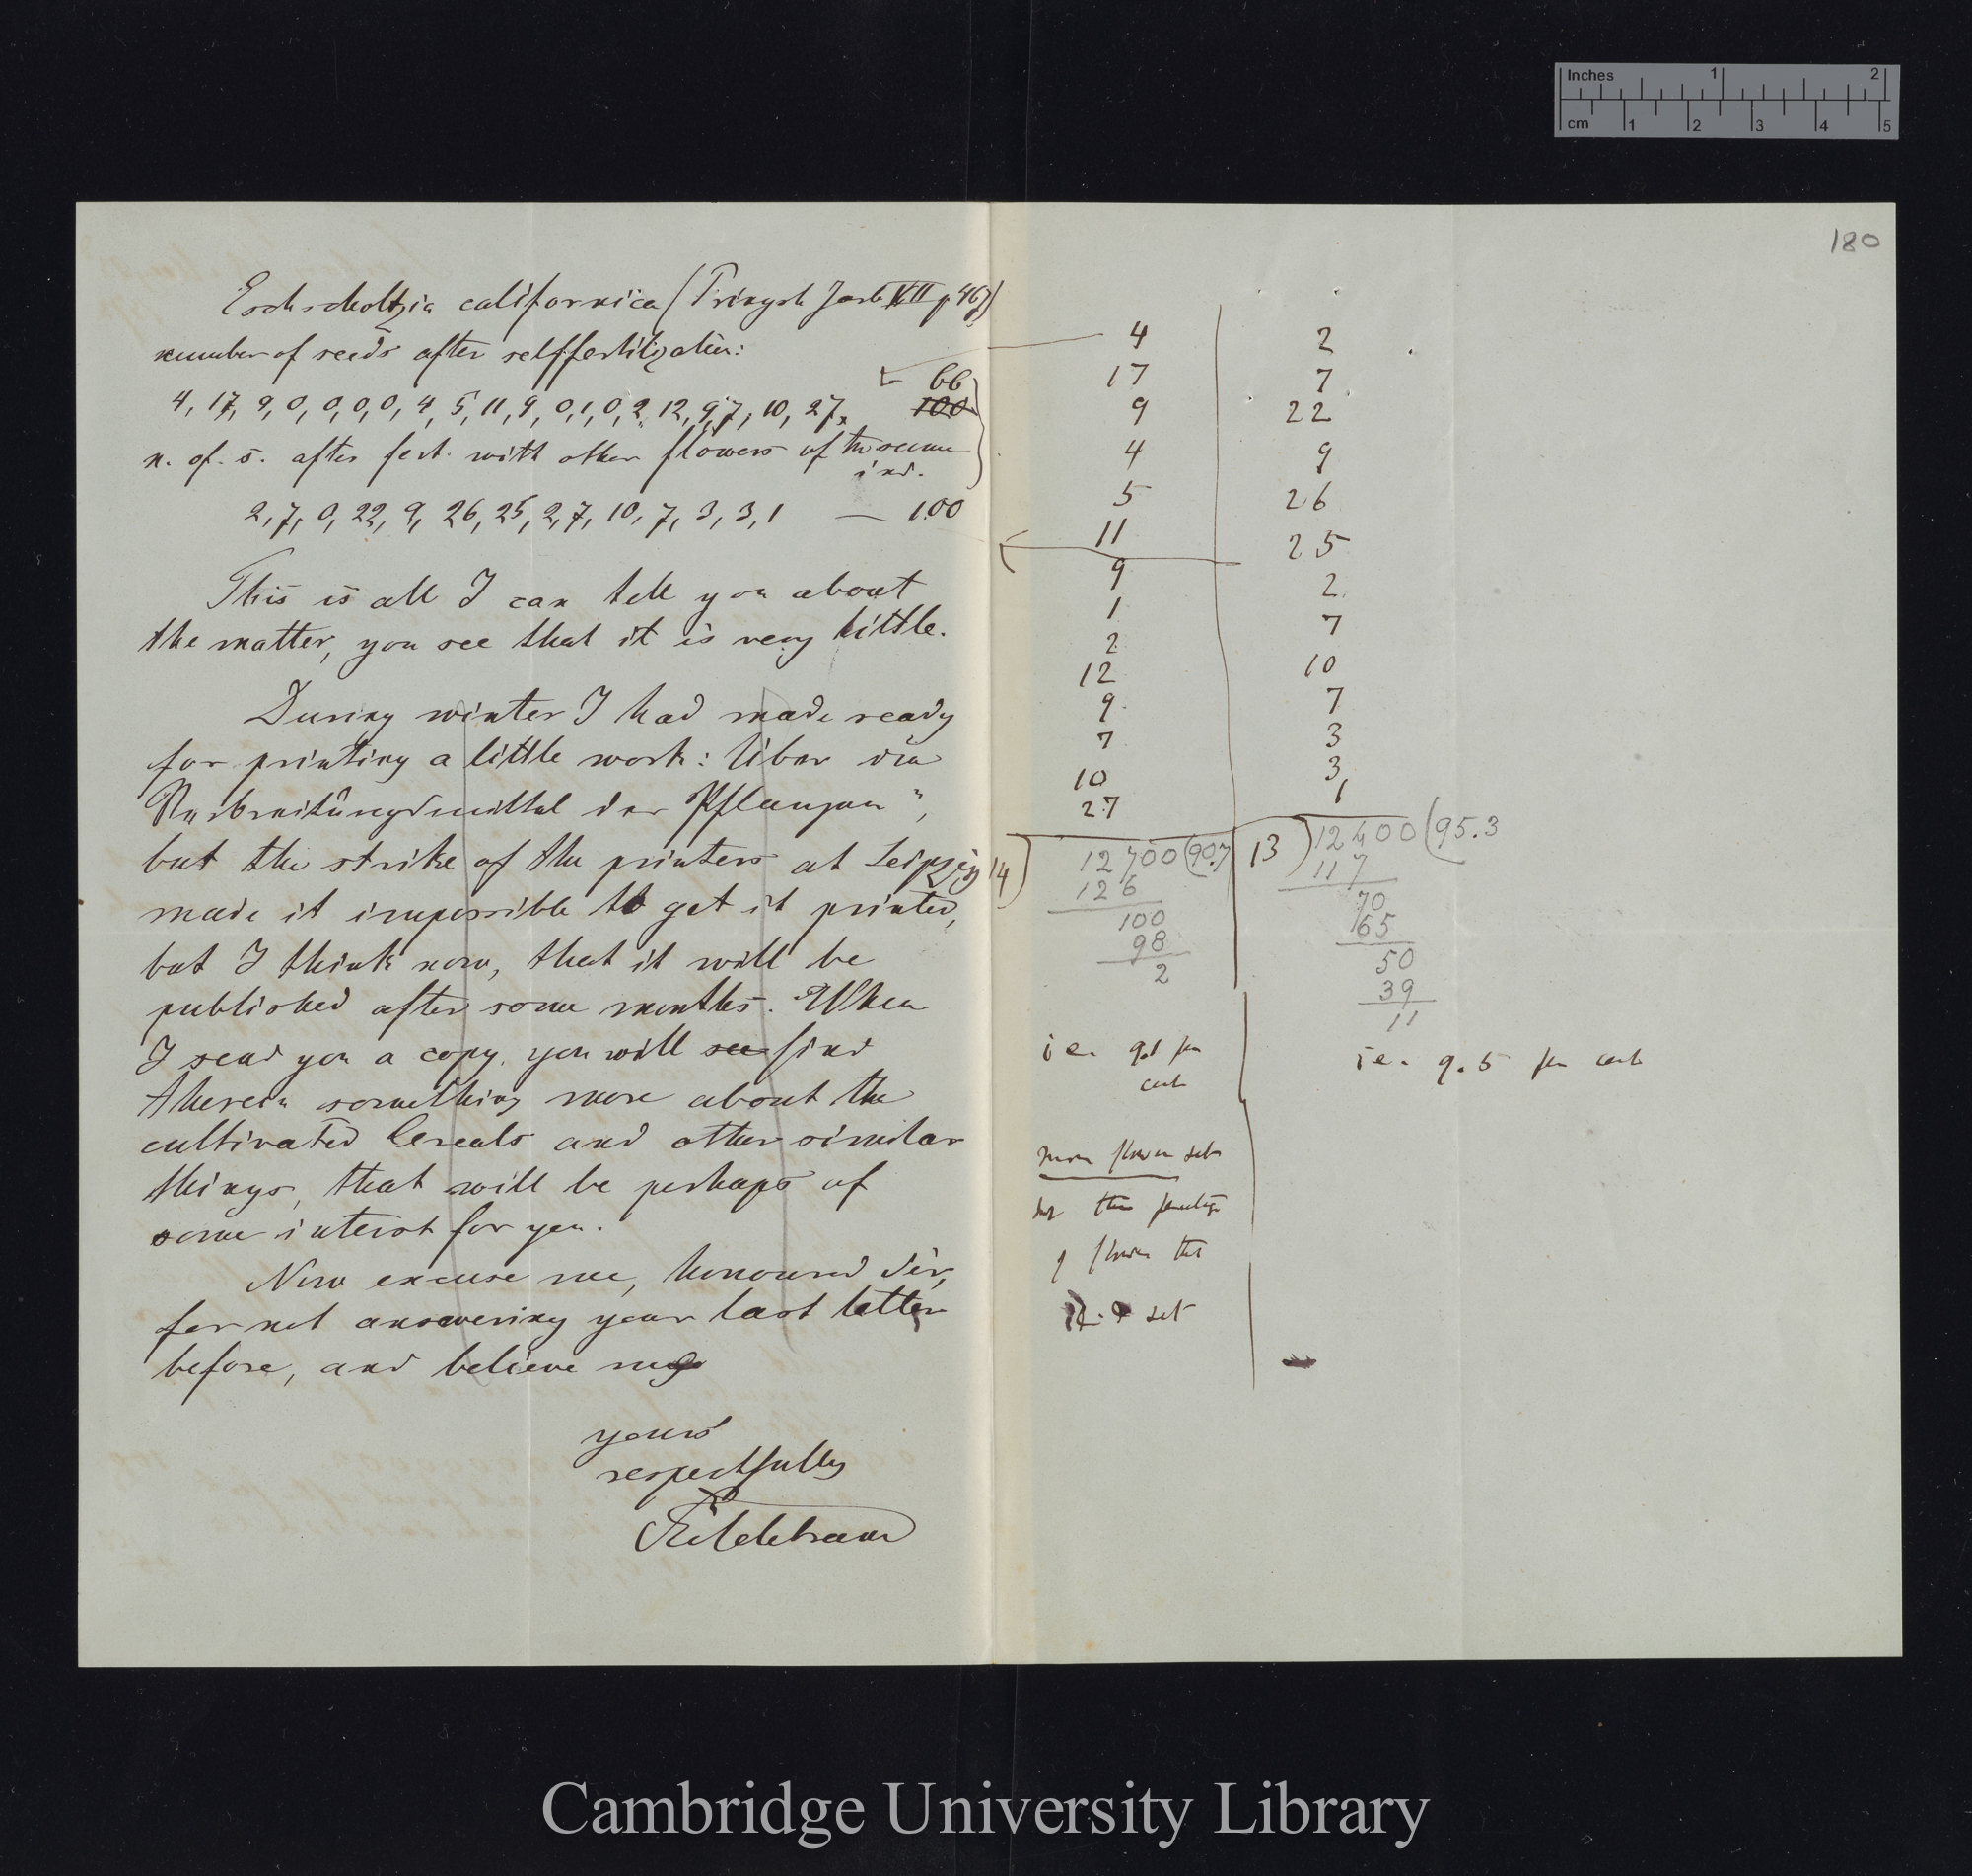 Inches 1 2
cm 1 2 3 4 5
180
Eschscholtzia californica (Pringsh Jarb VII p 467)
number of seeds after selffertilization:
66
4, 17, 9, 0, 0, 0, 0, 4, 5, 11, 9, 0, 1, 0, 2, 12, 9, 7, 10, 27, 100
n. of. s. after fert. with other flowers of the same
ind.
2, 7, 0, 22, 9, 26, 25, 2, 7, 10, 7, 3, 3, 1 — 100
This is all I can tell you about
the matter, you see that it is very little.
During winter I had made ready
for printing a little work: Über die
Verbreitungsmittel der Pflanzen",
but the strike of the printers at Leipzig
made it impossible to get it printed,
but I think now, that it will be
published after some months. When
I send you a copy, you will see find
therein something more about the
cultivated Cereals and other similar
things, that will be perhaps of
some interest for you.
Now excuse me, honoured Sir,
for not answering your last letter
before, and believe me
yours
respectfully
Hildebrand
4
17
9
4
5
11
9
1
2
12
9
7
10
27
14) 12700 (90.7
126
100
98
2
i.e. 9.1 per
cent
more flowers set
by the percentage
of flowers that
set
2
7
22
9
26
25
2
7
10
7
3
3
1
13) 12400 (95.3
117
70
65
50
39
11
i.e. 9.5 per cent
Cambridge University Library